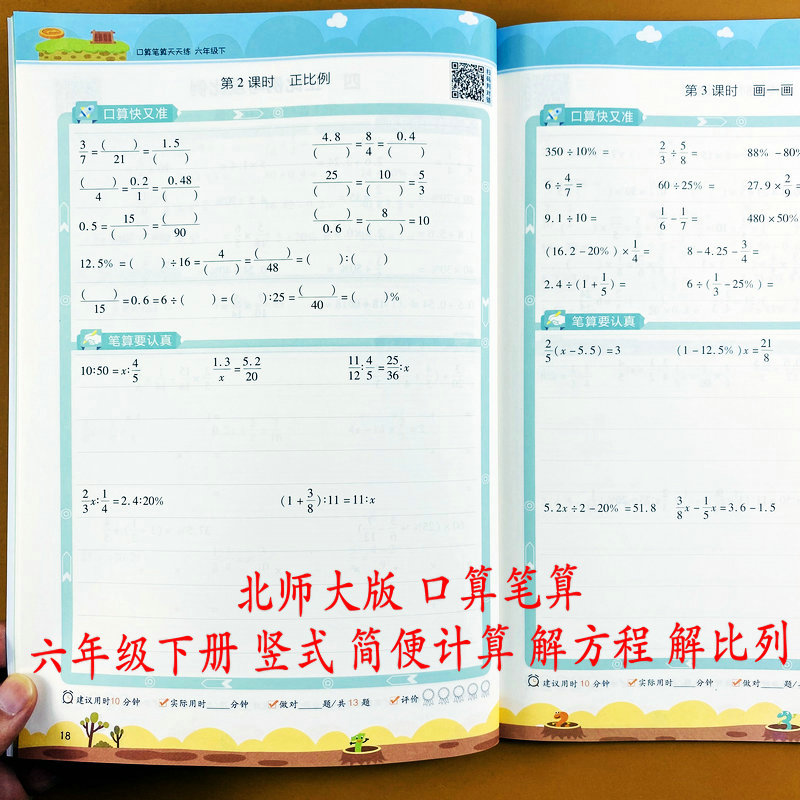 口算笔算天天练 六年级下
第2课时 正比例
扫码对答案
口算快又准
3/7=( )/21=1.5/( )
4.8/( )=8/4=0.4/( )
( )/4=0.2/1=0.48/( )
25/( )=10/( )=5/3
0.5=15/( )=( )/90
( )/0.6=8/( )=10
12.5%=( )÷16=4/( )=( )/48=( ):( )
( )/15=0.6=6÷( )=( ):25=( )/40=( )%
笔算要认真
10:50=x:4/5
1.3/x=5.2/20
11/12:4/5=25/36:x
2/3x:1/4=2.4:20%
(1+3/8):11=11:x
建议用时10分钟 实际用时____分钟 做对____题/共13题 评价
18
第3课时 画一画
口算快又准
350÷10%= 2/3÷5/8= 88%-80%
6÷4/7= 60÷25%= 27.9×2/9
9.1÷10= 1/6-1/7= 480×50%
(16.2-20%)×1/4= 8-4.25-3/4=
2.4÷(1+1/5)= 6÷(1/3-25%)=
笔算要认真
2/5(x-5.5)=3 (1-12.5%)x=21/8
5.2x÷2-20%=51.8 3/8x-1/5x=3.6-1.5
建议用时10分钟 实际用时____分钟 做对
北师大版 口算笔算
六年级下册 竖式 简便计算 解方程 解比列